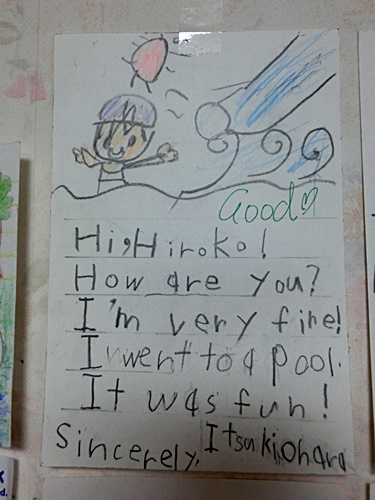 Good♡
Hi, Hiroko!
How are you?
I'm very fine!
I went to a pool.
It was fun!
Sincerely, Itsuki Ohara